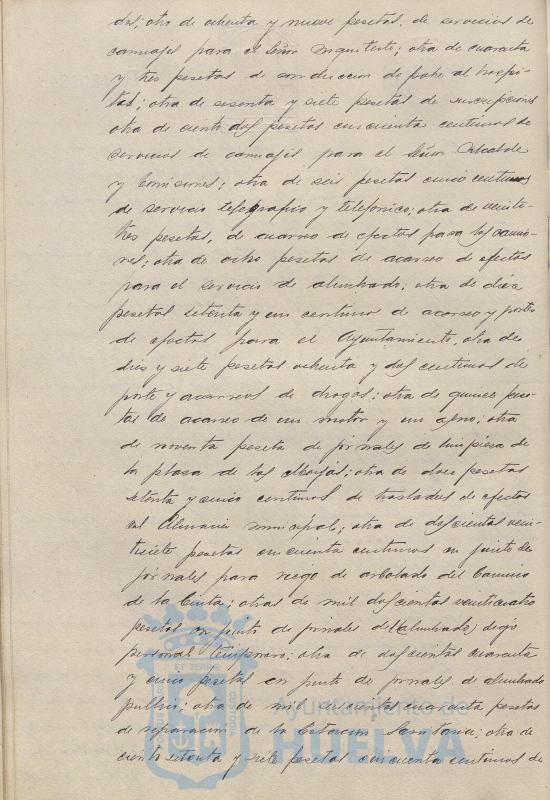 dos; otra de ochenta y nueve pesetas, de servicios de
carruajes para el Señor Arquitecto; otra de cuarenta
y tres pesetas de conducción de pobres al hospi-
tal; otra de sesenta y siete pesetas de suscripciones
otra de ciento dos pesetas cincuenta centimos de
servicios de carruajes para el Señor Alcalde
y Comisiones; otra de seis pesetas cinco centimos
de servicio telegrafico y telefonico; otra de veinti-
tres pesetas, de acarreo de efectos para los camio-
nes; otra de ocho pesetas de acarreo de efectos
para el servicio de alumbrado; otra de diez
pesetas setenta y un centimos de acarreo y portes
de efectos para el Ayuntamiento, otra de
diez y siete pesetas ochenta y dos centimos de
porte y acarreos de drogas; otra de quince pese-
tas de acarreo de un motor y un aforo; otra
de noventa peseta de jornales de limpieza de
la plaza de las Monjas; otra de doce pesetas
setenta y cinco centimos de traslados de efectos
al Almacen municipal; otra de doscientas vein-
tisiete pesetas cincuenta centimos en junto de
jornales para riego de arbolado del Camino
de la Cinta; otras de mil doscientas veinticuatro
pesetas en junto de jornales del (alumbrado) digo
personal temporero; otra de doscientas cuarenta
y cinco pesetas en junto de jornales de alumbrado
publico; otra de mil cuarenta pesetas
de reparacion de la Estacion Sanitaria; otra de
ciento setenta y siete pesetas cincuenta centimos de
Ayuntamiento de
HUELVA